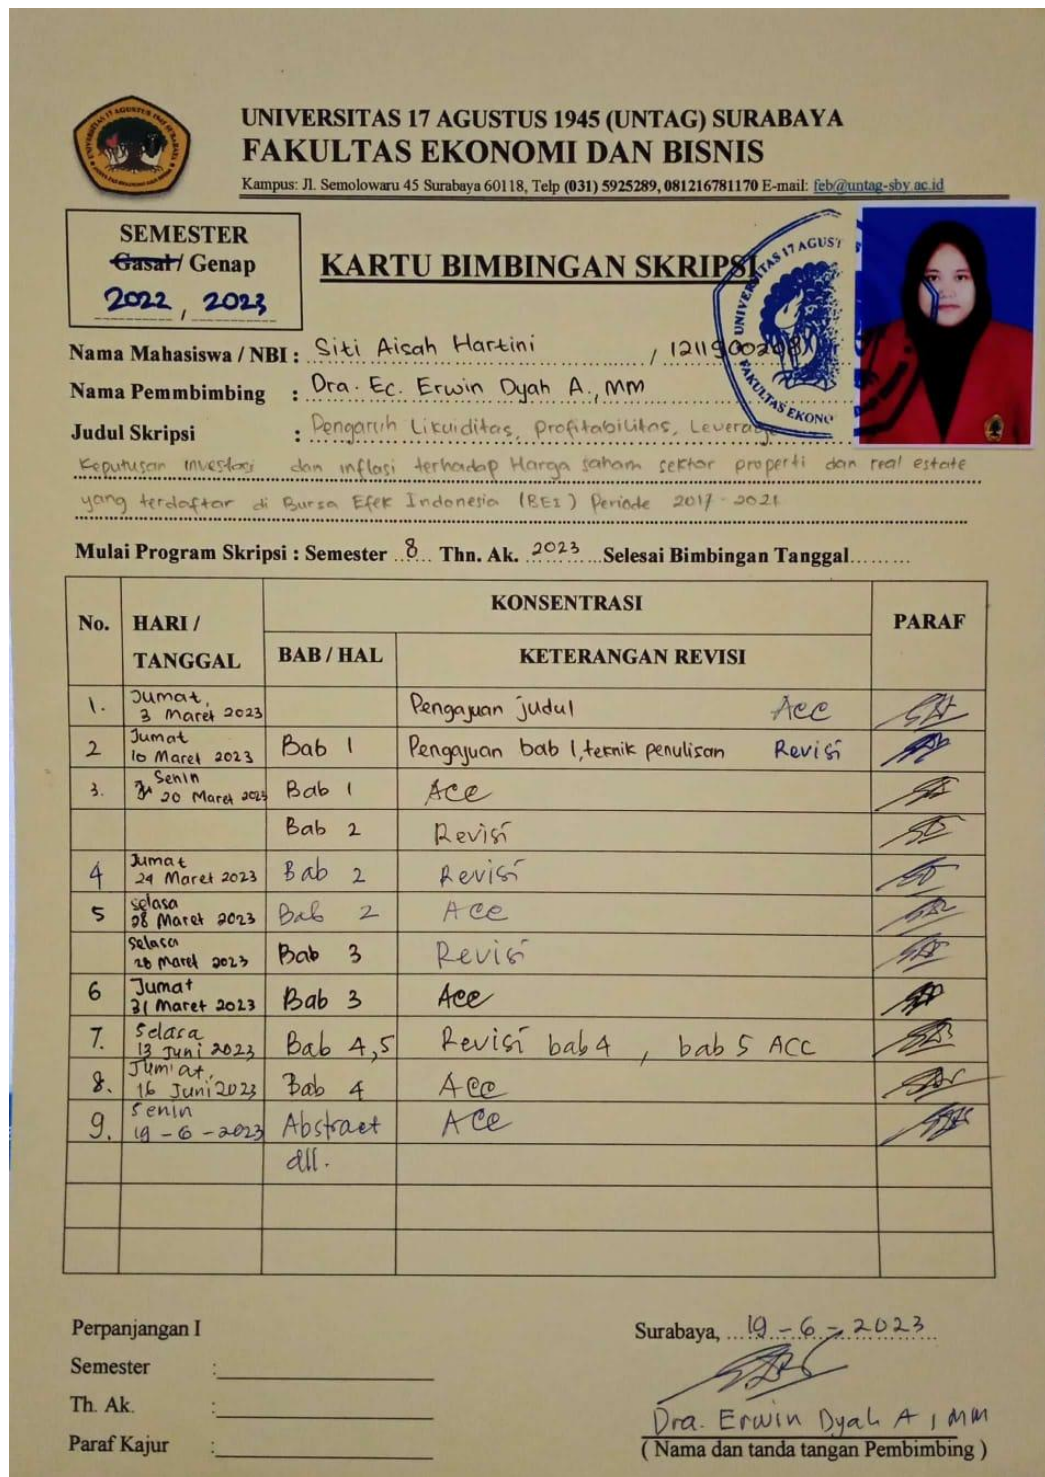 UNIVERSITAS 17 AGUSTUS 1945 (UNTAG) SURABAYA
FAKULTAS EKONOMI DAN BISNIS
Kampus: Jl. Semolowaru 45 Surabaya 60118, Telp (031) 5925289, 081216781170 E-mail: feb@untag-sby.ac.id
SEMESTER
Gasal / Genap
2022, 2023
KARTU BIMBINGAN SKRIPSI
UNIVERSITAS 17 AGUST
FAKULTAS EKONO
Nama Mahasiswa / NBI : Siti Aisah Hartini /
Nama Pemmbimbing : Dra. Ec. Erwin Dyah A., MM
Judul Skripsi : Pengaruh Likuiditas, Profitabilitas, Leverage
Keputusan Investasi dan inflasi terhadap Harga saham sektor properti dan real estate
yang terdaftar di Bursa Efek Indonesia (BEI) Periode 2017-2021
Mulai Program Skripsi : Semester 8 Thn. Ak. 2023 Selesai Bimbingan Tanggal.........
No. HARI / TANGGAL KONSENTRASI PARAF
BAB / HAL KETERANGAN REVISI
1. Jumat, 3 Maret 2023 Pengajuan judul Acc
2 Jumat 10 Maret 2023 Bab 1 Pengajuan bab 1, teknik penulisan Revisi
3. Senin 20 Maret 2023 Bab 1 Acc
Bab 2 Revisi
4 Jumat 24 Maret 2023 Bab 2 Revisi
5 Selasa 28 Maret 2023 Bab 2 Acc
Selasa 28 Maret 2023 Bab 3 Revisi
6 Jumat 31 Maret 2023 Bab 3 Acc
7. Selasa 13 Juni 2023 Bab 4,5 Revisi bab 4, bab 5 ACC
8. Jum'at, 16 Juni 2023 Bab 4 Acc
9. Senin 19-6-2023 Abstract Acc
dll.
Perpanjangan I
Semester :
Th. Ak. :
Paraf Kajur :
Surabaya, 19-6-2023
Dra. Erwin Dyah A, MM
( Nama dan tanda tangan Pembimbing )